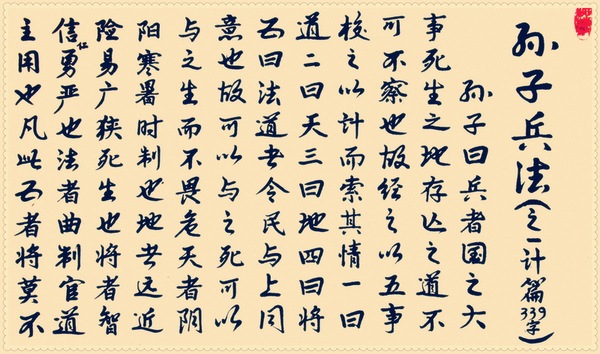 孙子兵法(之一计篇339字)
孙子曰兵者国之大
事死生之地存亡之道不
可不察也故经之以五事
校之以计而索其情一曰
道二曰天三曰地四曰将
五曰法道者令民与上同
意也故可以与之死可以
与之生而不畏危天者阴
阳寒暑时制也地者远近
险易广狭死生也将者智
信仁勇严也法者曲制官道
主用也凡此五者将莫不